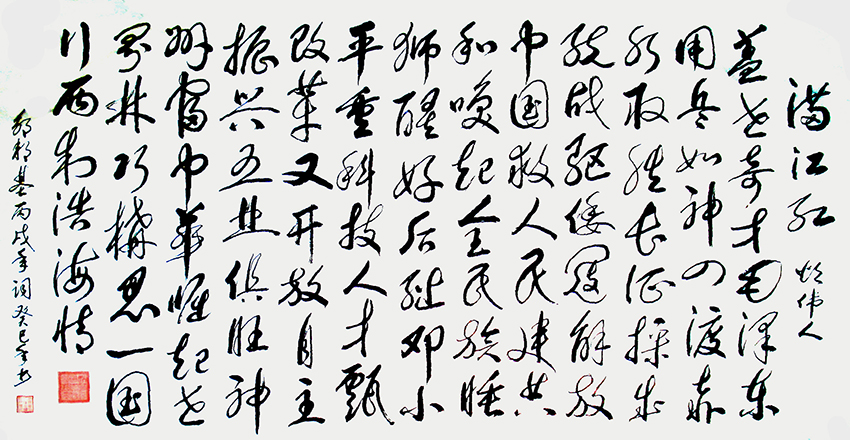 满江红 忆伟人
盖世奇才毛泽东
用兵如神四渡赤
水取胜长征
战驱倭寇解放
中国救人民建共
和唤起全民族睡
狮醒好后继邓小
平重科技人才甄
改革又开放自主
振兴五业俱旺神
州富中华崛起世
界林巧构思一国
行两制浩海情
基丙戌年词癸巳年书